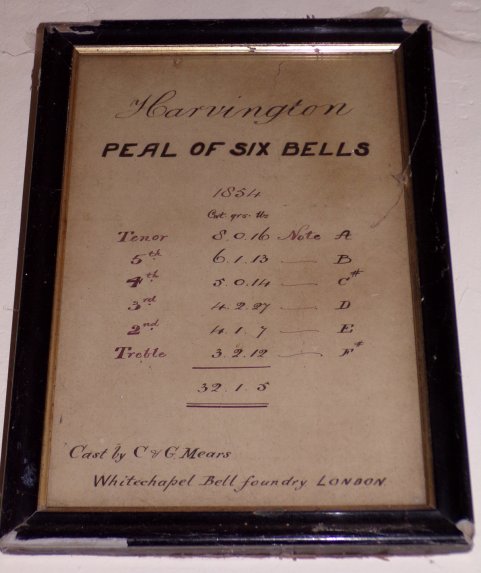 Harvington
PEAL OF SIX BELLS
1854
Cwt qrs. lbs
Tenor 8.0.16 Note A
5th 6.1.13 — B
4th 5.0.14 — C#
3rd 4.2.27 — D
2nd 4.1.7 — E
Treble 3.2.12 — F#
32.1.5
Cast by C & G. Mears
Whitechapel Bell foundry LONDON